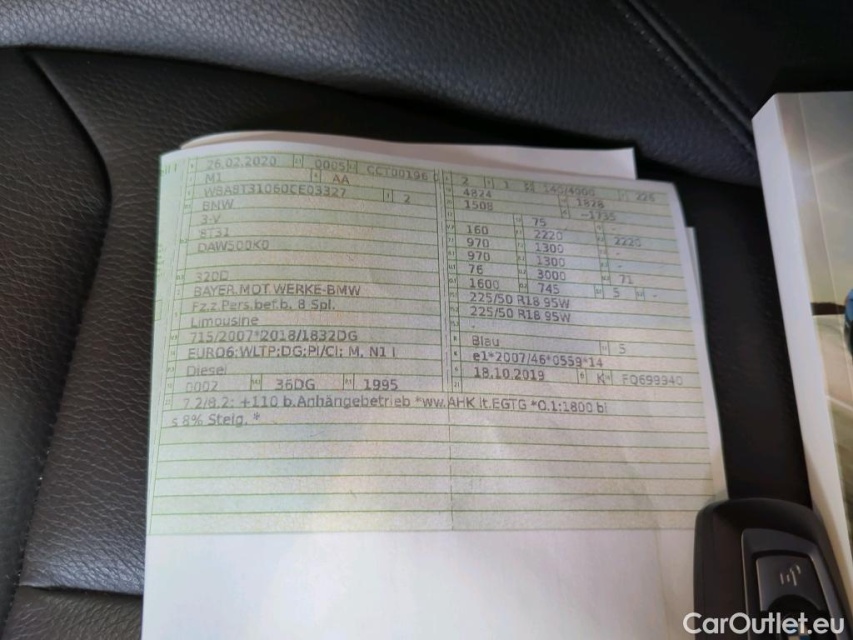 26.02.2020 0005 CCT00196
M1 AA
WBA8T31060CE03327 2
BMW
3-V
8T31
DAW500K0
320D
BAYER.MOT.WERKE-BMW
Fz.z.Pers.bef.b. 8 Spl.
Limousine
715/2007*2018/1832DG
EURO6;WLTP;DG;PI/CI; M, N1 I
Diesel
0002 36DG 1995
2 1 140/4000 226
4824 1828
1508 -1735
75 -
160 2220 2220
970 1300 -
970 1300 -
76 3000 71
1600 745 5 -
225/50 R18 95W
225/50 R18 95W
-
Blau 5
e1*2007/46*0559*14
18.10.2019 K FQ699940
7.2/8.2: +110 b.Anhängebetrieb *ww.AHK lt.EGTG *O.1:1800 bi
s 8% Steig. *
CarOutlet.eu